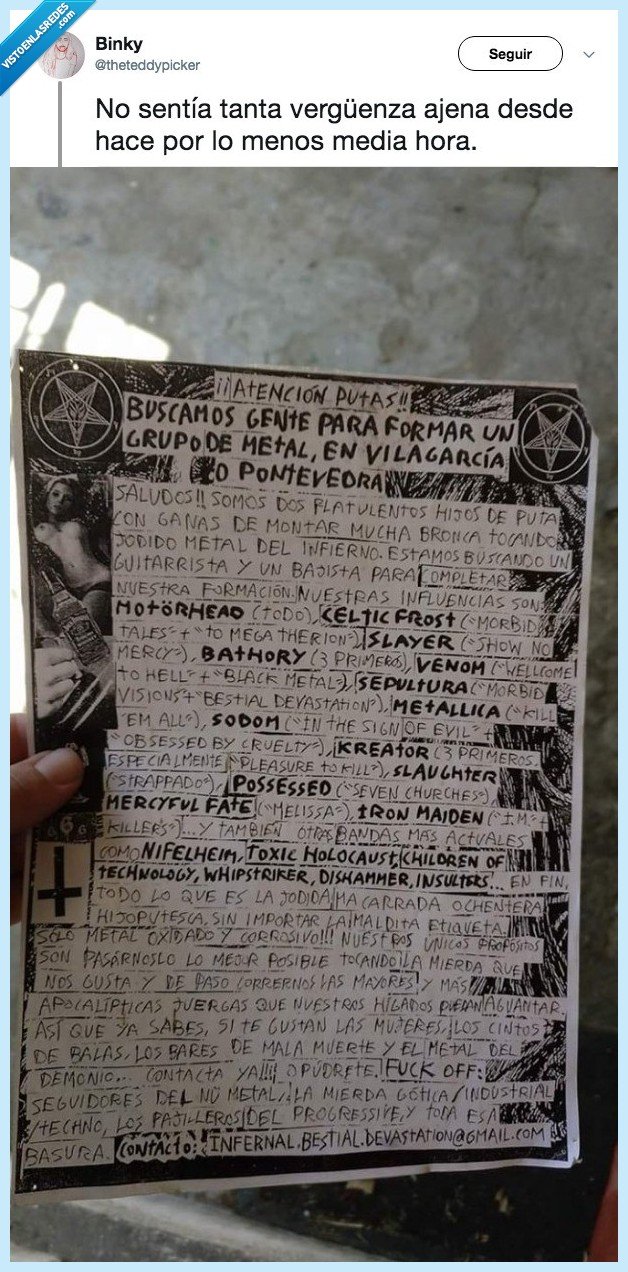 VISTOENLASREDES
.com
Binky
@theteddypicker
Seguir
No sentía tanta vergüenza ajena desde
hace por lo menos media hora.
¡¡¡ATENCIÓN PUTAS!!
BUSCAMOS GENTE PARA FORMAR UN
GRUPO DE METAL, EN VILAGARCÍA
O PONTEVEDRA
SALUDOS!! SOMOS DOS FLATULENTOS HIJOS DE PUTA
CON GANAS DE MONTAR MUCHA BRONCA TOCANDO
JODIDO METAL DEL INFIERNO. ESTAMOS BUSCANDO UN
GUITARRISTA Y UN BAJISTA PARA COMPLETAR
NUESTRA FORMACIÓN. NUESTRAS INFLUENCIAS SON:
MOTÖRHEAD (TODO), CELTIC FROST ("MORBID
TALES" + "TO MEGA THERION"), SLAYER ("SHOW NO
MERCY"), BATHORY (3 PRIMEROS), VENOM ("WELLCOME
TO HELL" + "BLACK METAL"), SEPULTURA ("MORBID
VISIONS" + "BESTIAL DEVASTATION"), METALLICA ("KILL
'EM ALL"), SODOM ("IN THE SIGN OF EVIL" +
"OBSESSED BY CRUELTY"), KREATOR (3 PRIMEROS
ESPECIALMENTE "PLEASURE TO KILL"), SLAUGHTER
("STRAPPADO"), POSSESSED ("SEVEN CHURCHES"),
MERCYFUL FATE ("MELISSA"), IRON MAIDEN ("I.M" +
KILLERS")... Y TAMBIÉN OTRAS BANDAS MAS ACTUALES
COMO NIFELHEIM, TOXIC HOLOCAUST, CHILDREN OF
TECHNOLOGY, WHIPSTRIKER, DISHAMMER, INSULTERS... EN FIN,
TODO LO QUE ES LA JODIDA MACARRADA OCHENTERA
HIJOPUTESCA, SIN IMPORTAR LA MALDITA ETIQUETA.
SÓLO METAL OXIDADO Y CORROSIVO!!! NUESTROS UNICOS PROPÓSITOS
SON PASÁRNOSLO LO MEJOR POSIBLE TOCANDO LA MIERDA QUE
NOS GUSTA Y DE PASO CORRERNOS LAS MAYORES Y MAS
APOCALÍPTICAS JUERGAS QUE NUESTROS HÍGADOS PUEDAN AGUANTAR.
ASÍ QUE YA SABES, SI TE GUSTAN LAS MUJERES, LOS CINTOS
DE BALAS, LOS BARES DE MALA MUERTE Y EL METAL DEL
DEMONIO... CONTACTA YA!!! O PÚDRETE. FUCK OFF:
SEGUIDORES DEL NÜ METAL, LA MIERDA GÓTICA/INDUSTRIAL
/TECHNO, LOS PAJILLEROS DEL PROGRESSIVE, Y TODA ESA
BASURA. CONTACTO: INFERNAL.BESTIAL.DEVASTATION@GMAIL.COM